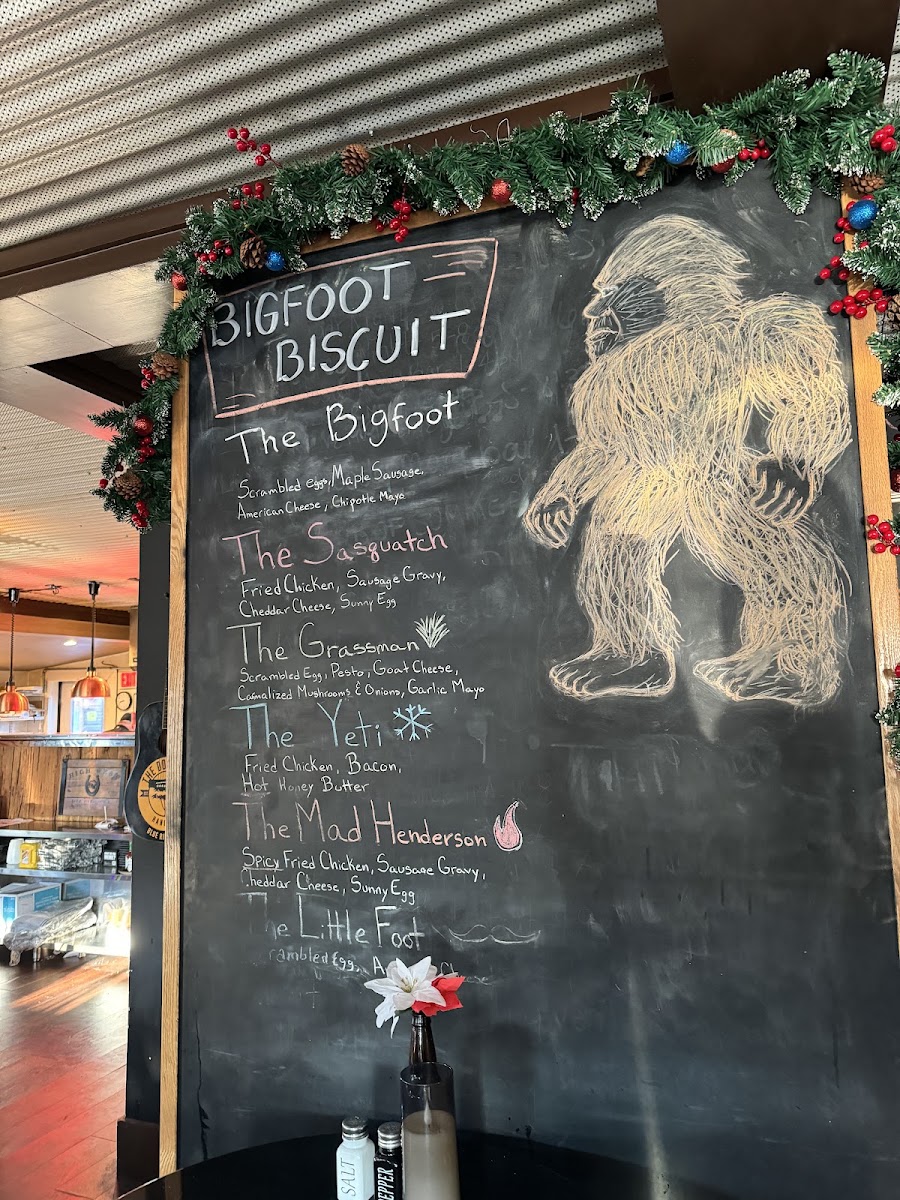 BIGFOOT
BISCUIT
The Bigfoot
Scrambled eggs, Maple Sausage,
American Cheese, Chipotle Mayo
The Sasquatch
Fried Chicken, Sausage Gravy,
Cheddar Cheese, Sunny Egg
The Grassman
Scrambled Egg, Pesto, Goat Cheese,
Carmalized Mushrooms & Onions, Garlic Mayo
The Yeti
Fried Chicken, Bacon,
Hot Honey Butter
The Mad Henderson
Spicy Fried Chicken, Sausage Gravy,
Cheddar Cheese, Sunny Egg
The Little Foot
rambled Egg, A
SALT
PEPPER
THE